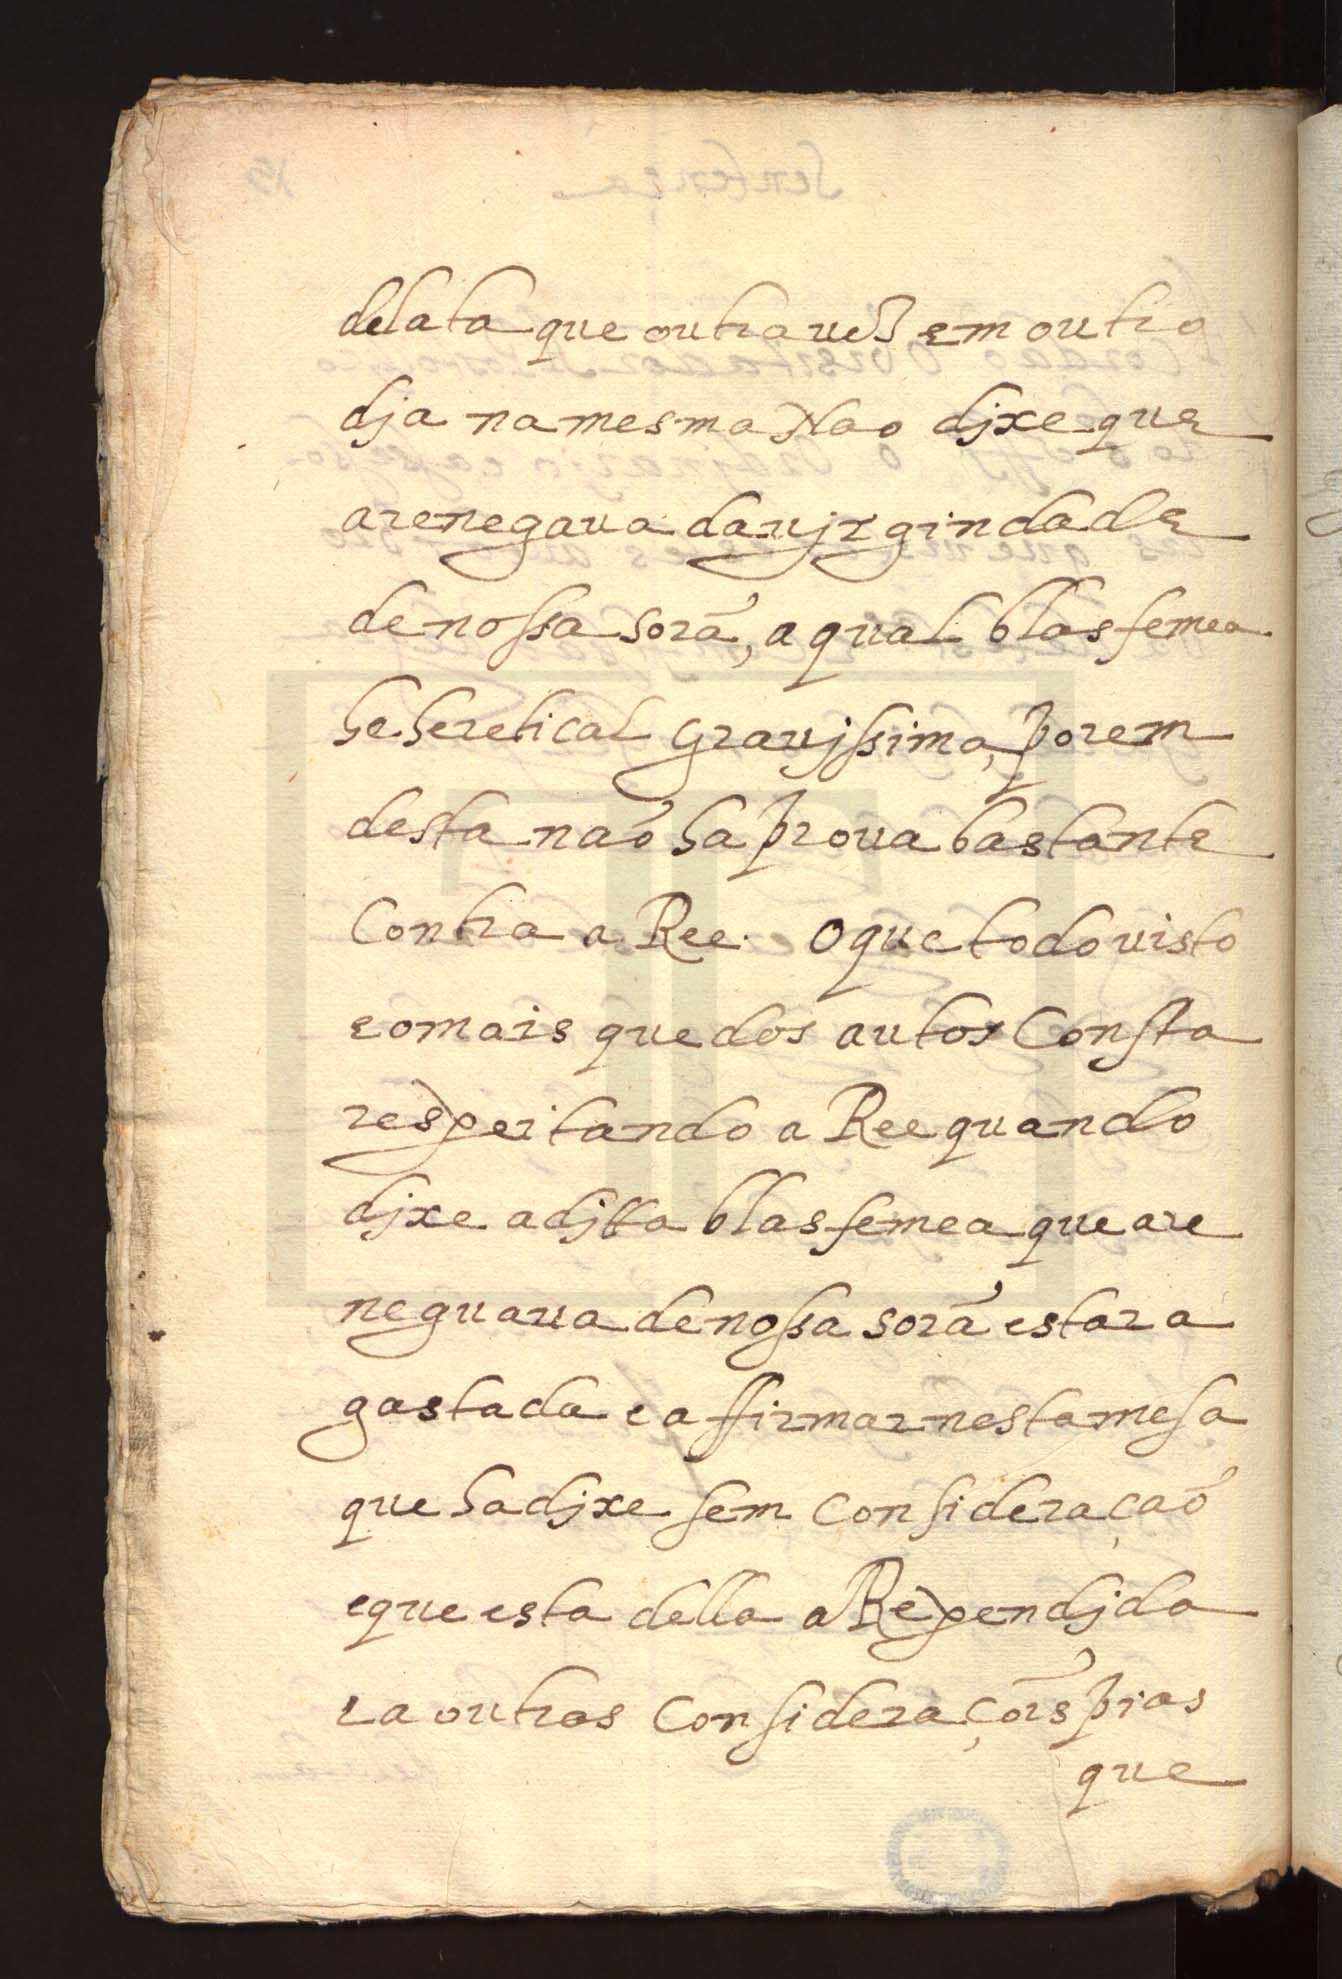 delata que outra ues em outro
dja na mesma Nao djxe que
arenegaua da ujrgindade
de nossa sorã, a qual blasfemea
he heretical grauissima, porem
desta naõ ha proua bastante
Contra a Ree. O que todo uisto
e o mais que dos autos Consta
respeitando a Ree quando
djxe a djtta blasfemea que are
neguaua de nossa sorã estar a
gastada e affirmar nesta mesa
que ha djxe sem Consideraçaõ
e que esta della aRependjda
e a outras Consideraçõis pias
que